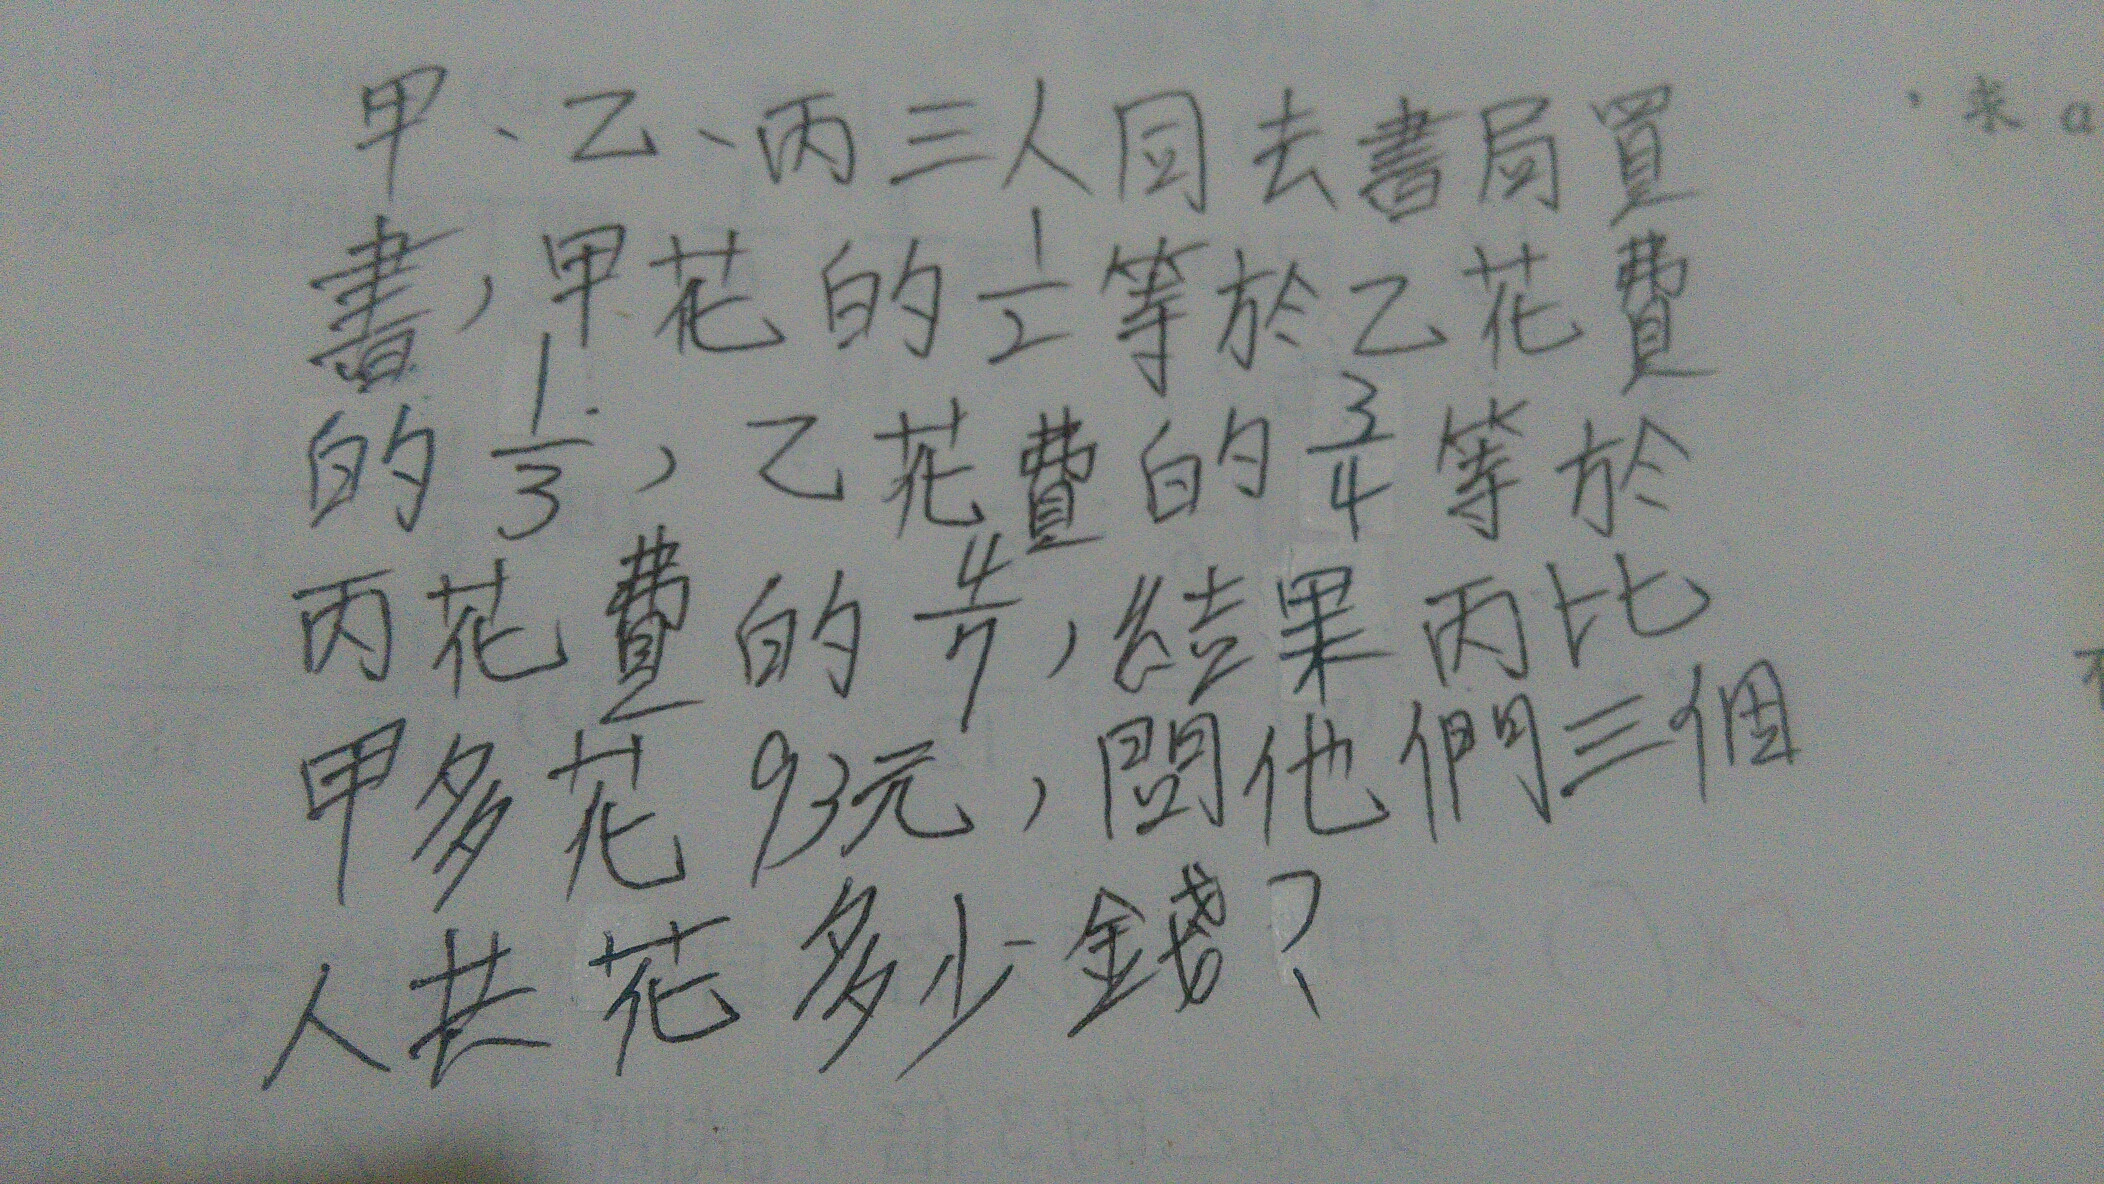 甲、乙、丙三人同去書局買
書,甲花的1/2等於乙花費
的1/3,乙花費的3/4等於
丙花費的4/7,結果丙比
甲多花93元,問他們三個
人共花多少錢?
、求a